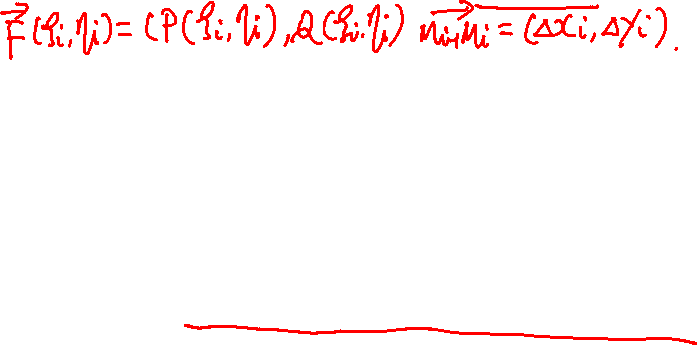 F⃗(ξi,ηi)=(P(ξi,ηi),Q(ξi,ηi) Mi-1Mi=(Δxi,Δyi).